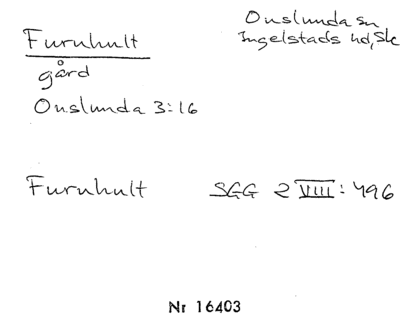 Furuhult
gård
Onslunda 3:16
Onslunda sn
Ingelstads hd, Sk
Furuhult SGG 2 VIII: 496
Nr 16403